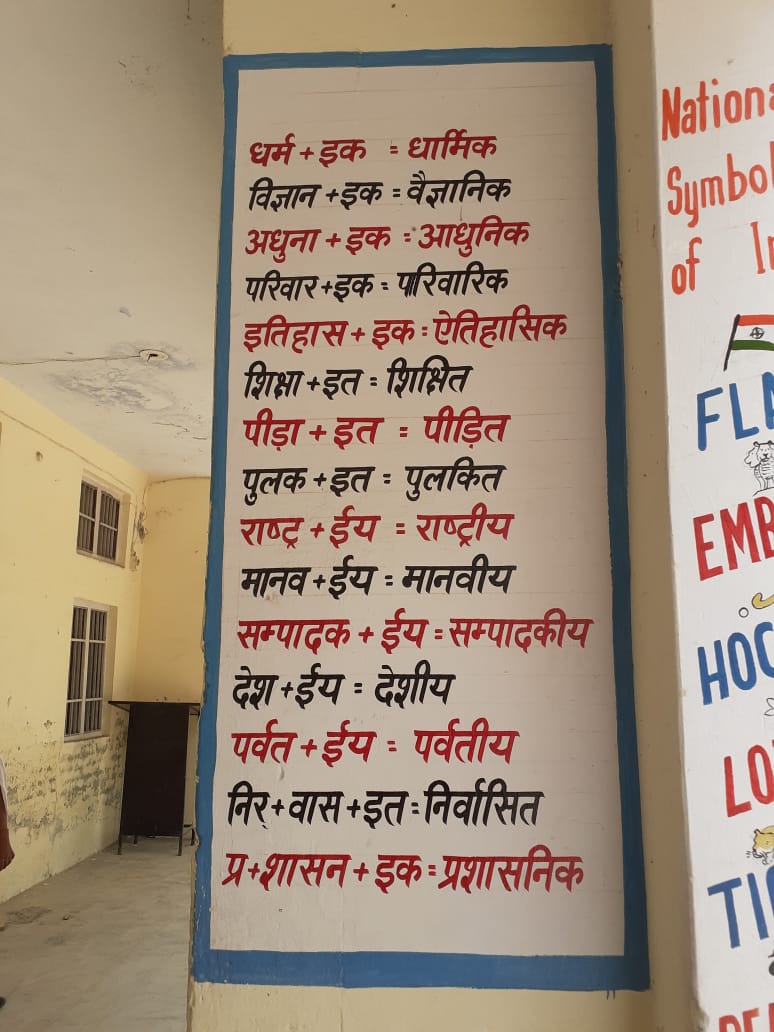 धर्म + इक = धार्मिक
विज्ञान + इक = वैज्ञानिक
अधुना + इक = आधुनिक
परिवार + इक = पारिवारिक
इतिहास + इक = ऐतिहासिक
शिक्षा + इत = शिक्षित
पीड़ा + इत = पीड़ित
पुलक + इत = पुलकित
राष्ट्र + ईय = राष्ट्रीय
मानव + ईय = मानवीय
सम्पादक + ईय = सम्पादकीय
देश + ईय = देशीय
पर्वत + ईय = पर्वतीय
निर् + वास + इत = निर्वासित
प्र + शासन + इक = प्रशासनिक
Symbol
of